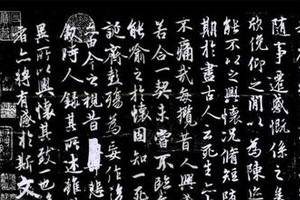 隨事遷感慨係之矣
欣俛仰之間以為陳迹
能不以之興懷況脩短隨
期於盡古人云死生亦
不痛哉每攬昔人興感
若合一契未嘗不臨文
能喻之於懷固知一死
誕齊彭殤為妄作後
由今之視昔
敘時人錄其所述雖
異所以興懷其致一也
者亦將有感於斯文